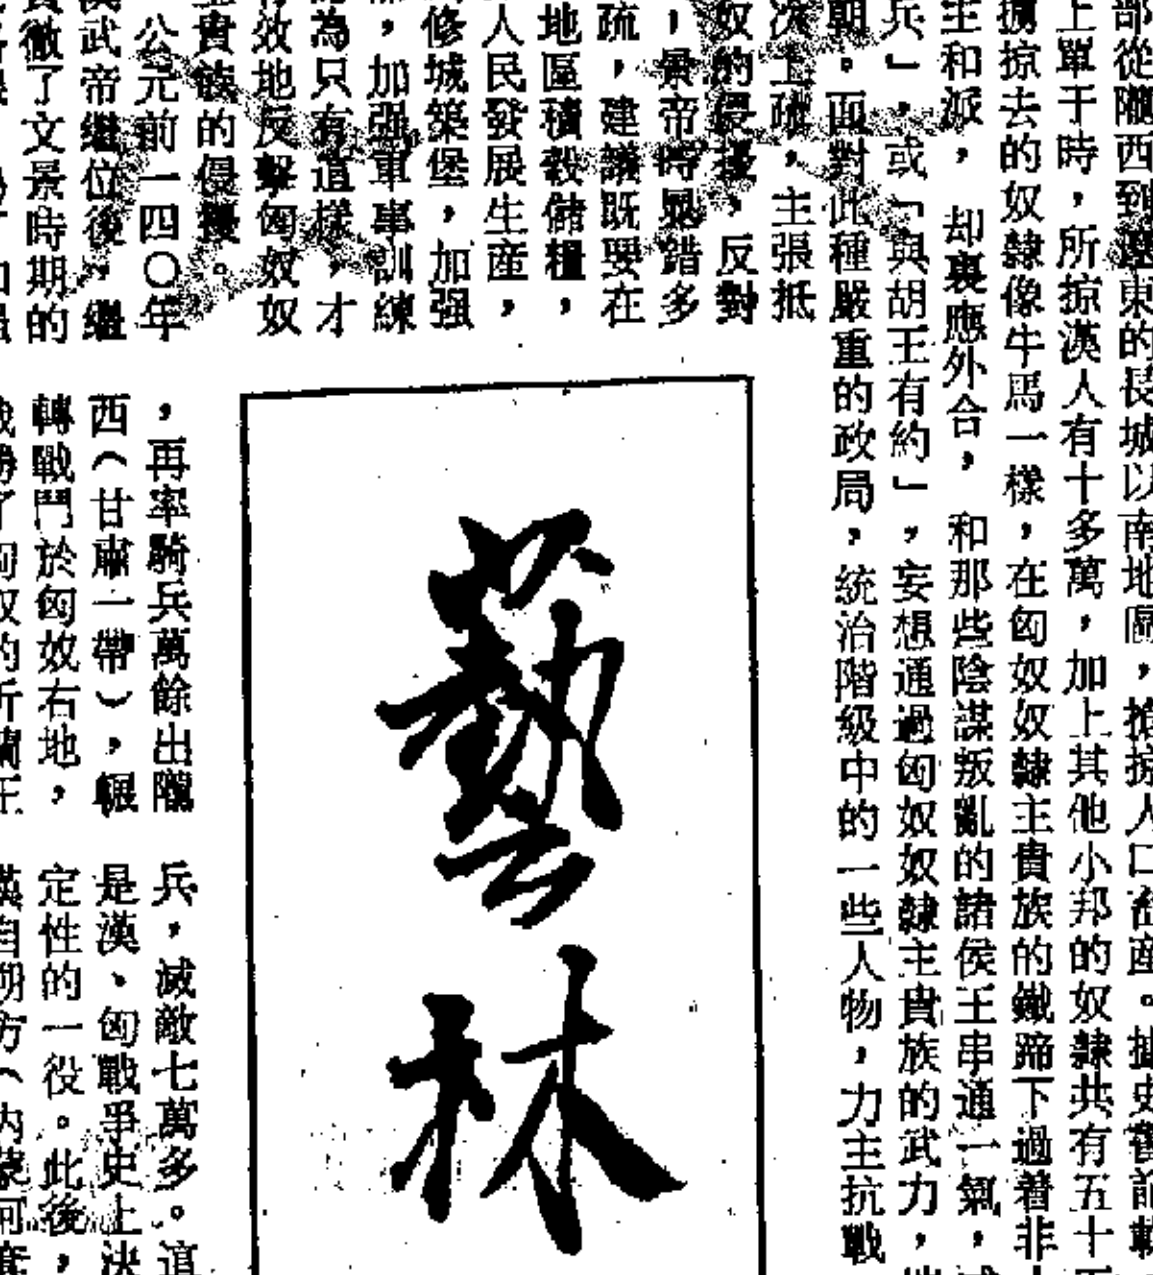 部從隴西到遼東的長城以南地區，搶掠人口畜産。據史書
上單于時，所掠漢人有十多萬，加上其他小邦的奴隸共有五十
擄掠去的奴隸像牛馬一樣，在匈奴奴隸主貴族的鐵蹄下過着非
主和派，却裏應外合，和那些陰謀叛亂的諸侯王串通一氣，
兵」，或「與胡王有約」，妄想通過匈奴奴隸主貴族的武力，
朝。面對此種嚴重的政局，統治階級中的一些人物，力主抗戰
次上疏，主張抵
奴的侵擾，反對
，景帝時晁錯多
疏，建議既要在
地區積穀儲糧，
人民發展生産，
修城築堡，加强
，加强軍事訓練
為只有這樣，才
效地反擊匈奴奴
主貴族的侵擾。
公元前一四〇年
漢武帝繼位後，繼
貫徹了文景時期的
藝林
，再率騎兵萬餘出隴
西（甘肅一帶），輾
轉戰鬥於匈奴右地，
戰勝了匈奴的折蘭王
兵，滅敵七萬多。這
是漢、匈戰爭史上決
定性的一役。此後，
漢自朔方（內蒙河套